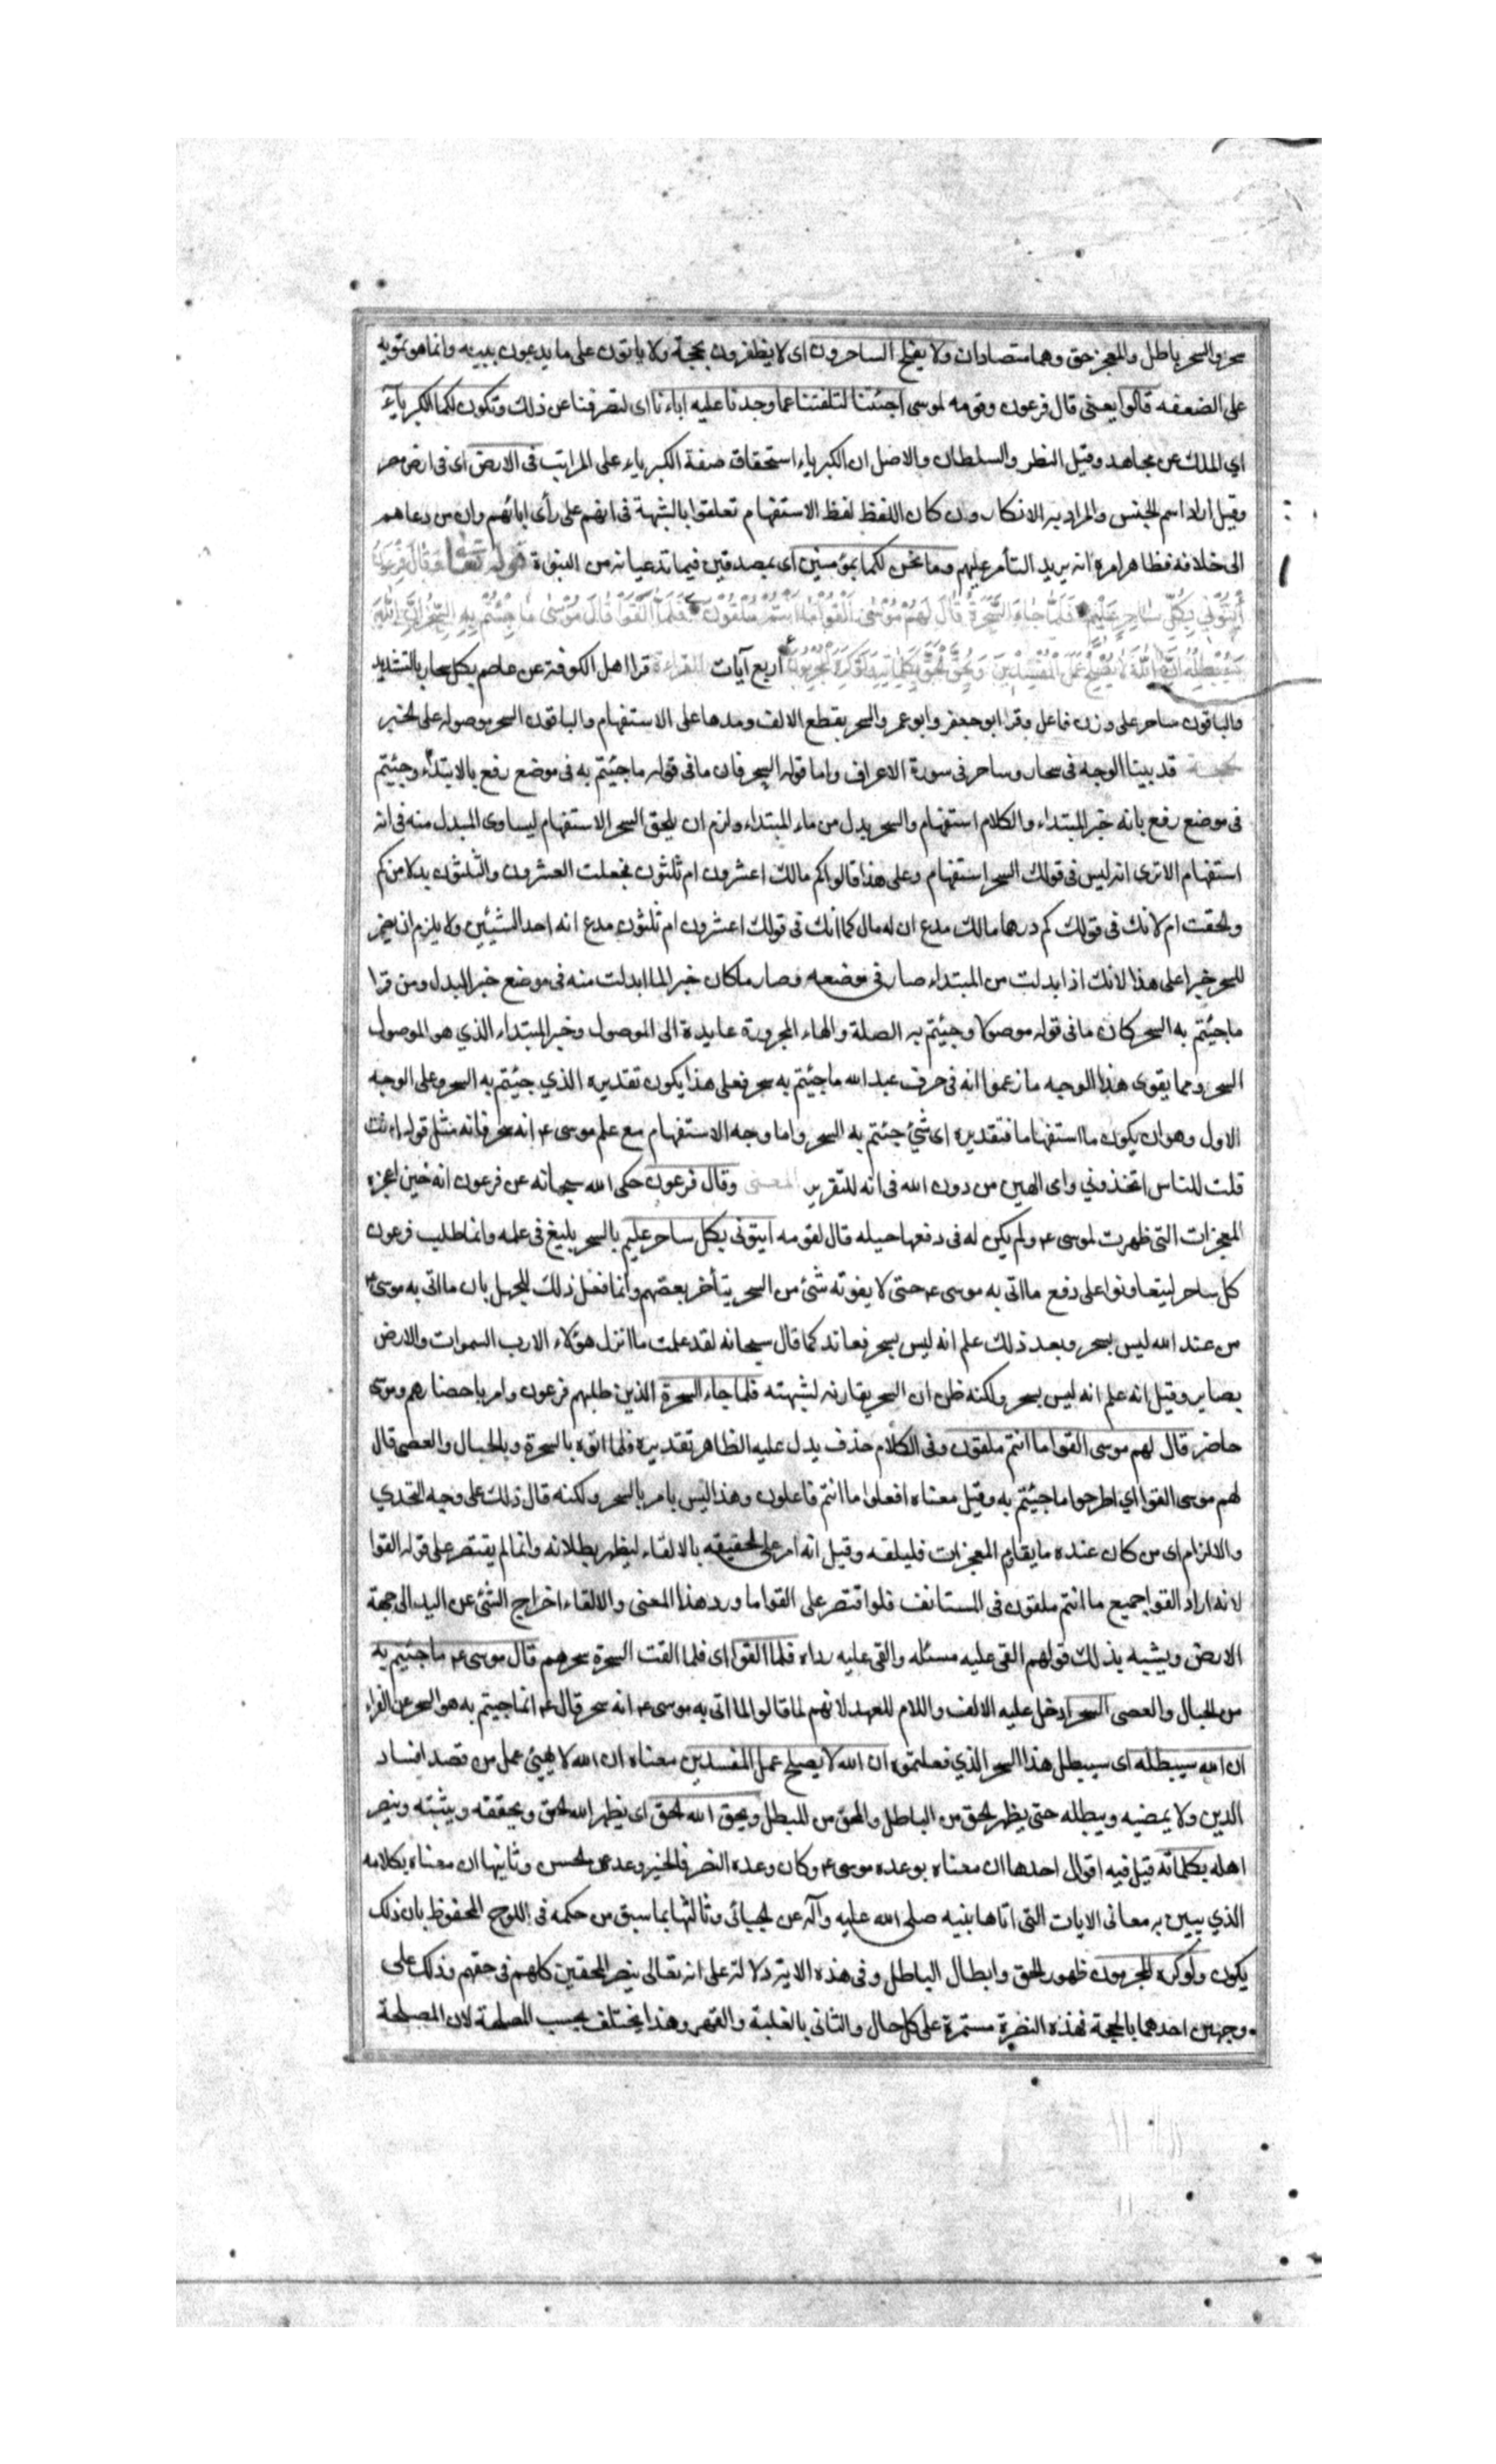 سحر والسحر باطل والمعجز حق وهما متضادان ولا يفلح الساحرون اى لا يظفرون بحجة ولا ياتون على ما يدعون ببينه وانما هو تمويه
على الضعفه قالوا يعنى قال فرعون وقومه لموسى اجئتنا لتلفتنا عما وجدنا عليه اباءنا اى لتصرفنا عن ذلك وتكون لكما الكبرياء
اي الملك عن مجاهد وقيل النظر والسلطان والاصل ان الكبرياء استحقاق صفة الكبرياء على المراتب فى الارض اى فى ارض مصر
وقيل اراد اسم الجنس والمراد به الانكار وان كان اللفظ لفظ الاستفهام تعلقوا بالشبهة فى انهم على رأى ابائهم وان من دعاهم
الى خلافه فظاهر امره انه يريد التأمر عليهم وما نحن لكما بمؤمنين اى بمصدقين فيما تدعيانه من النبوة قوله تعا وقال فرعون
ائتونى بكل ساحر عليم فلما جاء السحرة قال لهم موسى القوا ما انتم ملقون فلما القوا قال موسى ما جئتم به السحر ان الله
سيبطله ان الله لا يصلح عمل المفسدين ويحق الله الحق بكلماته ولو كره المجرمون اربع آيات القراءة قرا اهل الكوفة عن عاصم بكل سحار بالتشديد
والباقون ساحر على وزن فاعل وقرا ابو جعفر وابو عمرو السحر بقطع الالف ومدها على الاستفهام والباقون السحر موصوله على الخبر
الحجة قد بينا الوجه فى سحار وساحر فى سورة الاعراف واما قوله السحر فان ما فى قوله ما جئتم به فى موضع رفع بالابتداء وجئتم
فى موضع رفع بانه خبر المبتداء والكلام استفهام والسحر بدل من ماء المبتداء ولزم ان يلحق السحر الاستفهام ليساوى المبدل منه فى انه
استفهام الا ترى انه ليس فى قولك السحر استفهام وعلى هذا قالوا كم مالك اعشرون ام ثلثون فجعلت العشرون والثلثون بدلا من كم
ولحقت ام لانك فى قولك كم درهما مالك مدع ان له مال كما انك فى قولك اعشرون ام ثلثون مدع انه احد الشيئين ولا يلزم ان يضمر
للسحر خبرا على هذا لانك اذا ابدلت من المبتداء صار فى موضعه وصار ما كان خبرا لما ابدلت منه فى موضع خبر البدل ومن قرا
ما جئتم به السحر كان ما فى قوله موصولا وجئتم به الصلة والهاء المجرورة عايدة الى الموصول وخبر المبتداء الذي هو الموصول
السحر ومما يقوى هذا الوجه ما زعموا انه فى حرف عبد الله ما جئتم به سحر فعلى هذا يكون تقديره الذي جئتم به السحر وعلى الوجه
الاول وهو ان يكون ما استفهاما فتقديره اى شئ جئتم به السحر واما وجه الاستفهام مع علم موسى ع انه سحر فانه مثل قوله اانت
قلت للناس اتخذوني وامى الهين من دون الله فى انه للتقرير المعنى وقال فرعون حكى الله سبحانه عن فرعون انه حين اعجزه
المعجزات التى ظهرت لموسى ع ولم يكن له فى دفعها حيله قال لقومه ايتونى بكل ساحر عليم بالسحر بليغ فى علمه وانما طلب فرعون
كل ساحر ليتعاونوا على دفع ما اتى به موسى ع حتى لا يفوته شئ من السحر يتأخر بعضهم وانما فعل ذلك للجهل بان ما اتى به موسى ع
من عند الله ليس بسحر وبعد ذلك علم انه ليس بسحر فعاند كما قال سبحانه لقد علمت ما انزل هؤلاء الا رب السموات والارض
بصاير وقيل انه علم انه ليس بسحر ولكنه ظن ان السحر يقاربه لشبهته فلما جاء السحرة الذين طلبهم فرعون وامر باحضارهم وموسى
حاضر قال لهم موسى القوا ما انتم ملقون وفى الكلام حذف يدل عليه الظاهر تقديره فلما اتوه بالسحرة وبالحبال والعصى قال
لهم موسى القوا اي اطرحوا ما جئتم به وقيل معناه افعلوا ما انتم فاعلون وهذا ليس بامر بالسحر ولكنه قال ذلك على وجه التحدي
والالزام اى من كان عنده ما يقاوم المعجزات فليلقه وقيل انه امر على الحقيقه بالالقاء ليظهر بطلانه وانما لم يقتصر على قوله القوا
لانه اراد القوا جميع ما انتم ملقون فى المستانف فلو اقتصر على القوا ما ورد هذا المعنى والالقاء اخراج الشئ عن اليد الى جهة
الارض ويشبه بذلك قولهم القى عليه مسئله والقى عليه رداه فلما القوا اى فلما القت السحرة سحرهم قال موسى ع ما جئتم به
من الحبال والعصى السحر ادخل عليه الالف واللام للعهد لانهم لما قالوا لما اتى به موسى ع انه سحر قال ع انما جيتم به هو السحر عن الفراء
ان الله سيبطله اى سيبطل هذا السحر الذي فعلتموه ان الله لا يصلح عمل المفسدين معناه ان الله لا يهيئ عمل من قصد افساد
الدين ولا يمضيه ويبطله حتى يظهر الحق من الباطل والمحق من المبطل ويحق الله الحق اى يظهر الله الحق ويحققه ويثبته وينصر
اهله بكلماته قيل فيه اقوال احدها ان معناه بوعده موسى ع وكان وعده النصر فانجز وعده عن الحسن وثانيها ان معناه بكلامه
الذي يبين به معانى الايات التى اتاها نبيه صلى الله عليه وآله عن الجبائى وثالثها بما سبق من حكمه فى اللوح المحفوظ بان ذلك
يكون ولو كره المجرمون ظهور الحق وابطال الباطل وفى هذه الاية دلالة على انه تعالى ينصر المحقين كلهم فى حقهم وذلك على
وجهين احدهما بالحجة فهذه النصرة مستمرة على كل حال والثانى بالغلبة والقهر وهذا يختلف بحسب المصلحة لان المصلحة